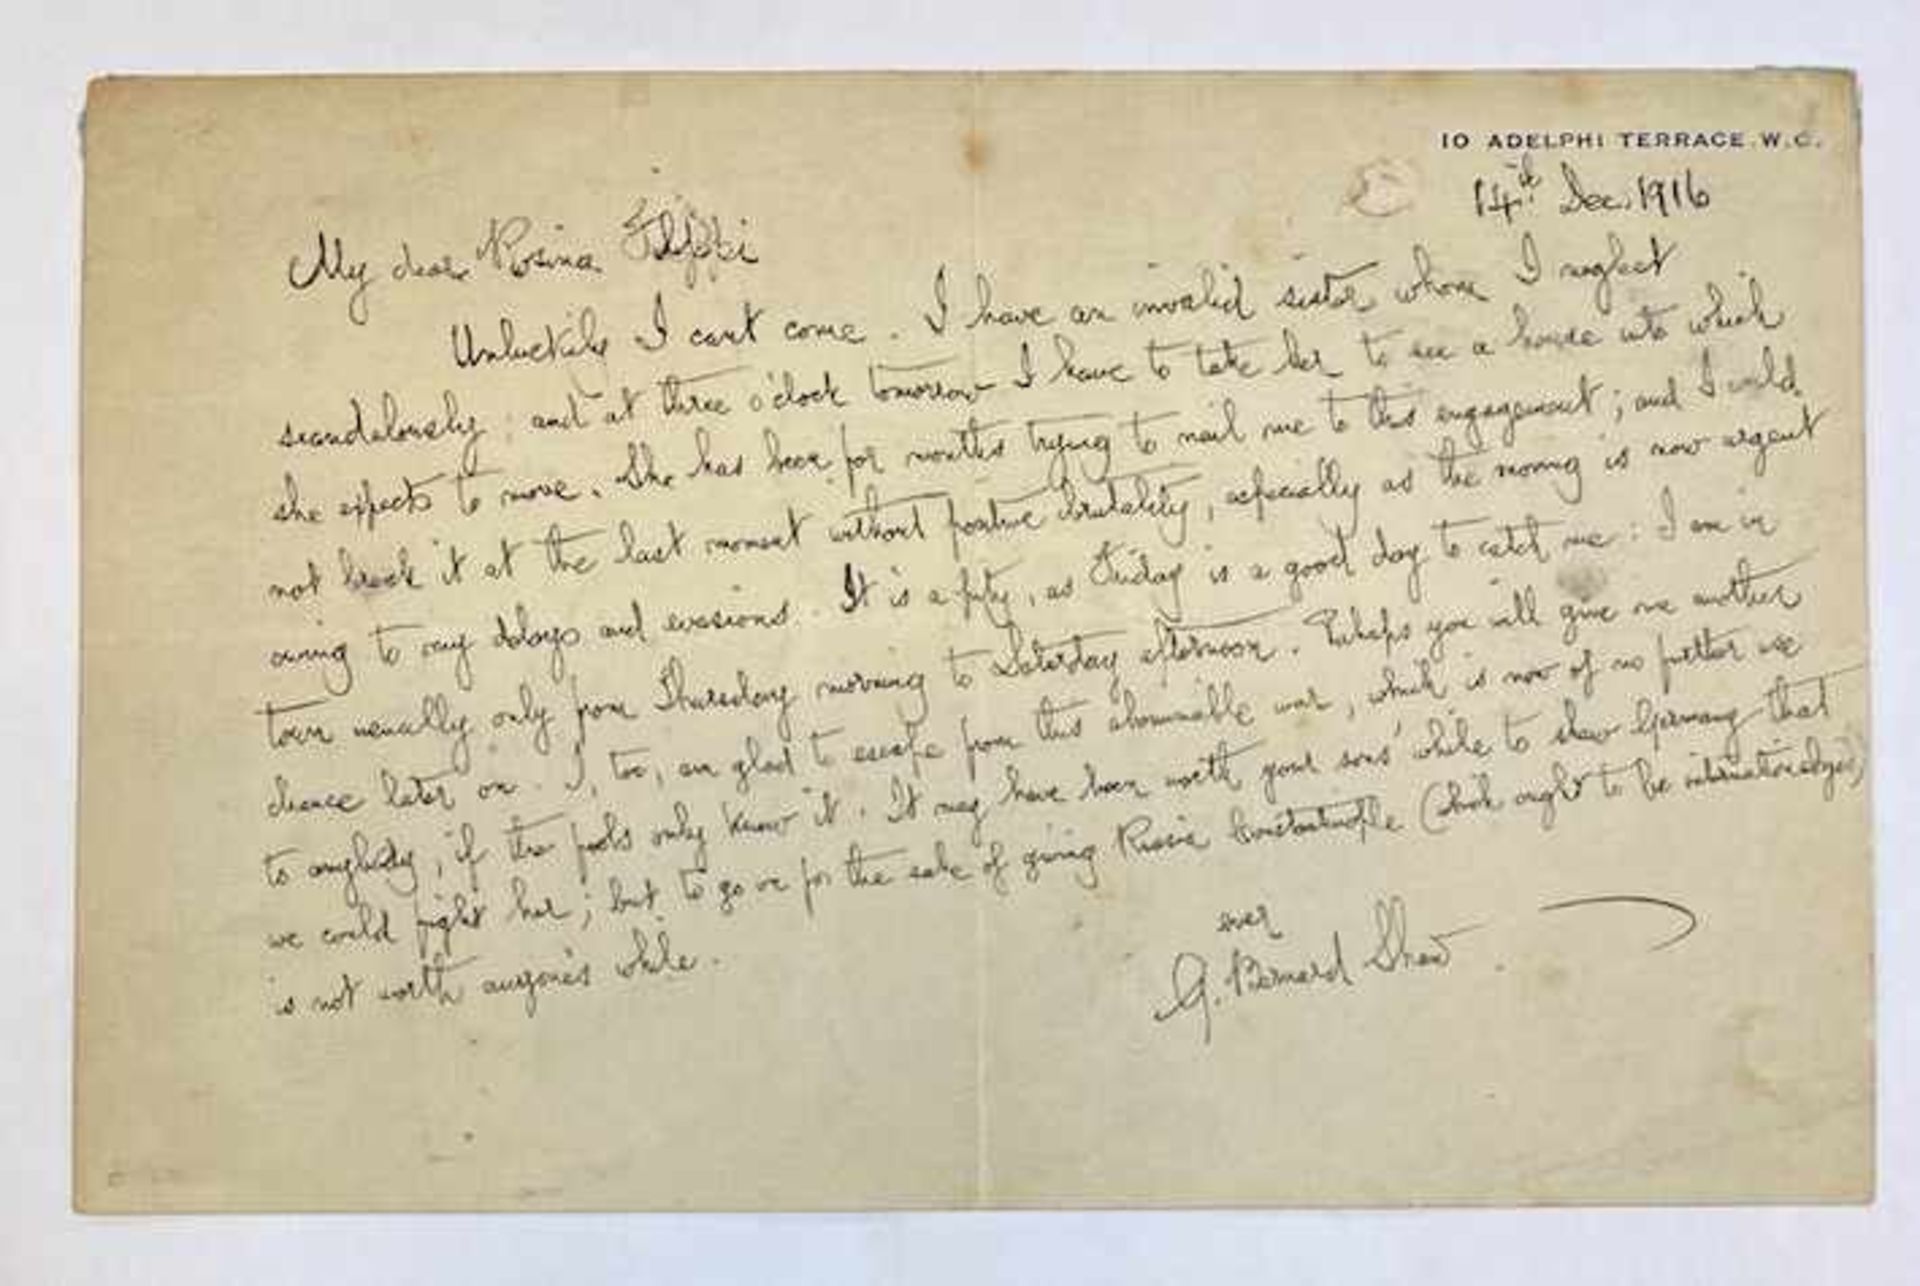 10 ADELPHI TERRACE. W.C.
14th Dec. 1916
My dear Rosina Filippi
Unluckily I cant come. I have an invalid sister whom I neglect
scandalously; and at three o'clock tomorrow I have to take her to see a house into which
she expects to move. She has been for months trying to nail me to this engagement; and I could
not break it at the last moment without positive brutality, especially as the moving is now urgent
owing to my delays and evasions. It is a pity, as Friday is a good day to catch me: I am in
town usually only from Thursday morning to Saturday afternoon. Perhaps you will give me another
chance later on. I, too, am glad to escape from this abominable war, which is now of no further use
to anybody, if the fools only knew it. It may have been worth your sons' while to shew Germany that
we could fight her; but to go on for the sake of giving Russia Constantinople (which ought to be internationalized)
is not worth anyone's while.
ever
G. Bernard Shaw